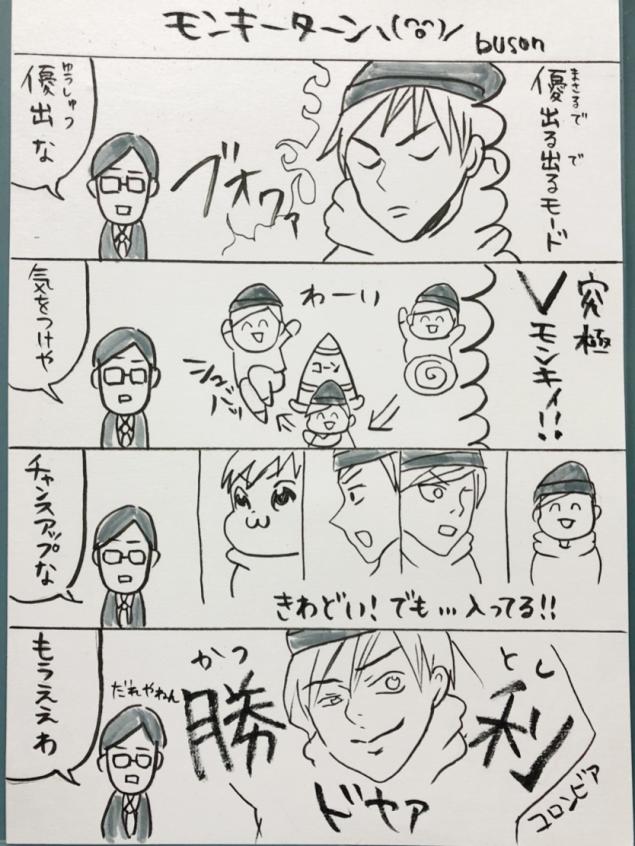 モンキーターン\(^o^)/
buson
優出る出るモード
まさるで で
ブオワァ
優出な
ゆうしゅつ
究極
Vモンキィ!!
わーい
コーン
シュバババッ
気をつけや
きわどい!でも…入ってる!!
チャンスアップな
とし
利
かつ
勝
ドヤァ
コロンビア
だれやねん
もうええわ